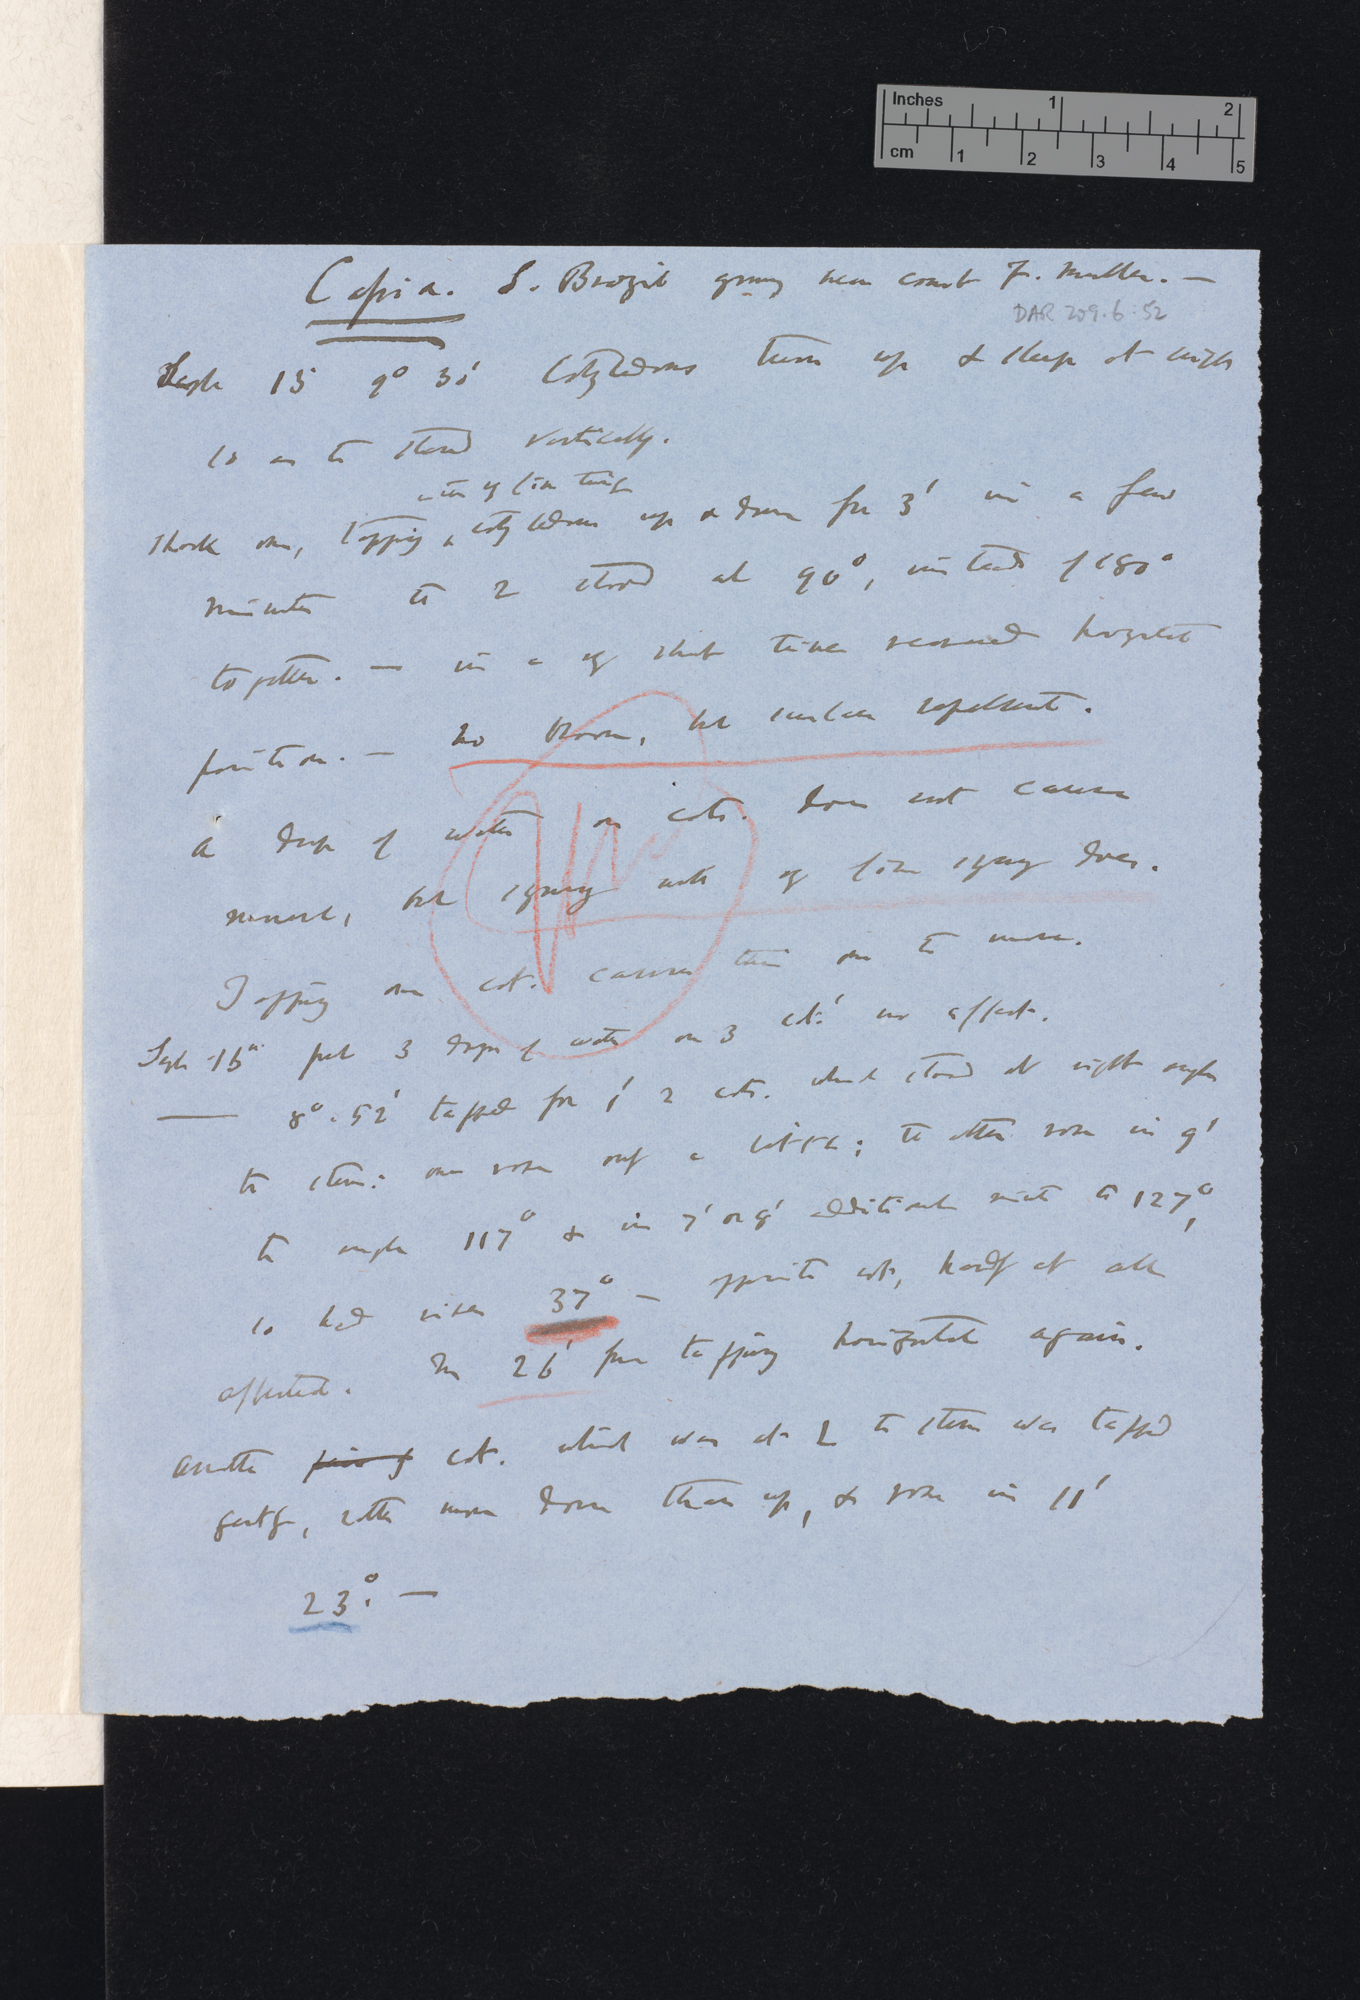 Inches 1 2
cm 1 2 3 4 5
Cassia. S. Brazil growing near coast F. Muller. —
DAR 209.6.52
Sept 15 9° 30' Cotyledons turn up & sleep at night
so as to stand vertically.
with very fine twig
Shook one, tapping cotyledons up & down for 3' in a few
minutes the 2 stood at 90°, instead of 180°
together. — in a very short time resumed horizontal
position. — No bloom, but surface repellent.
A drop of water on cots. does not cause
movement, but syringing with very fine syringe does.
Tapping one cot. causes this one to move.
Sept 16th put 3 drops of water on 3 cots. no effect.
8°.52' tapped for 1' 2 cots. which stood at right angles
to stem: one rose only a little; the other rose in 9'
to angle 117° & in 7' or 8' additional minutes to 127°,
so had risen 37° — opposite cot, hardly at all
affected. In 26' from tapping horizontal again.
Another cot. which was at L to stem was tapped
gently, rather more down than up, & rose in 11'
23°. —